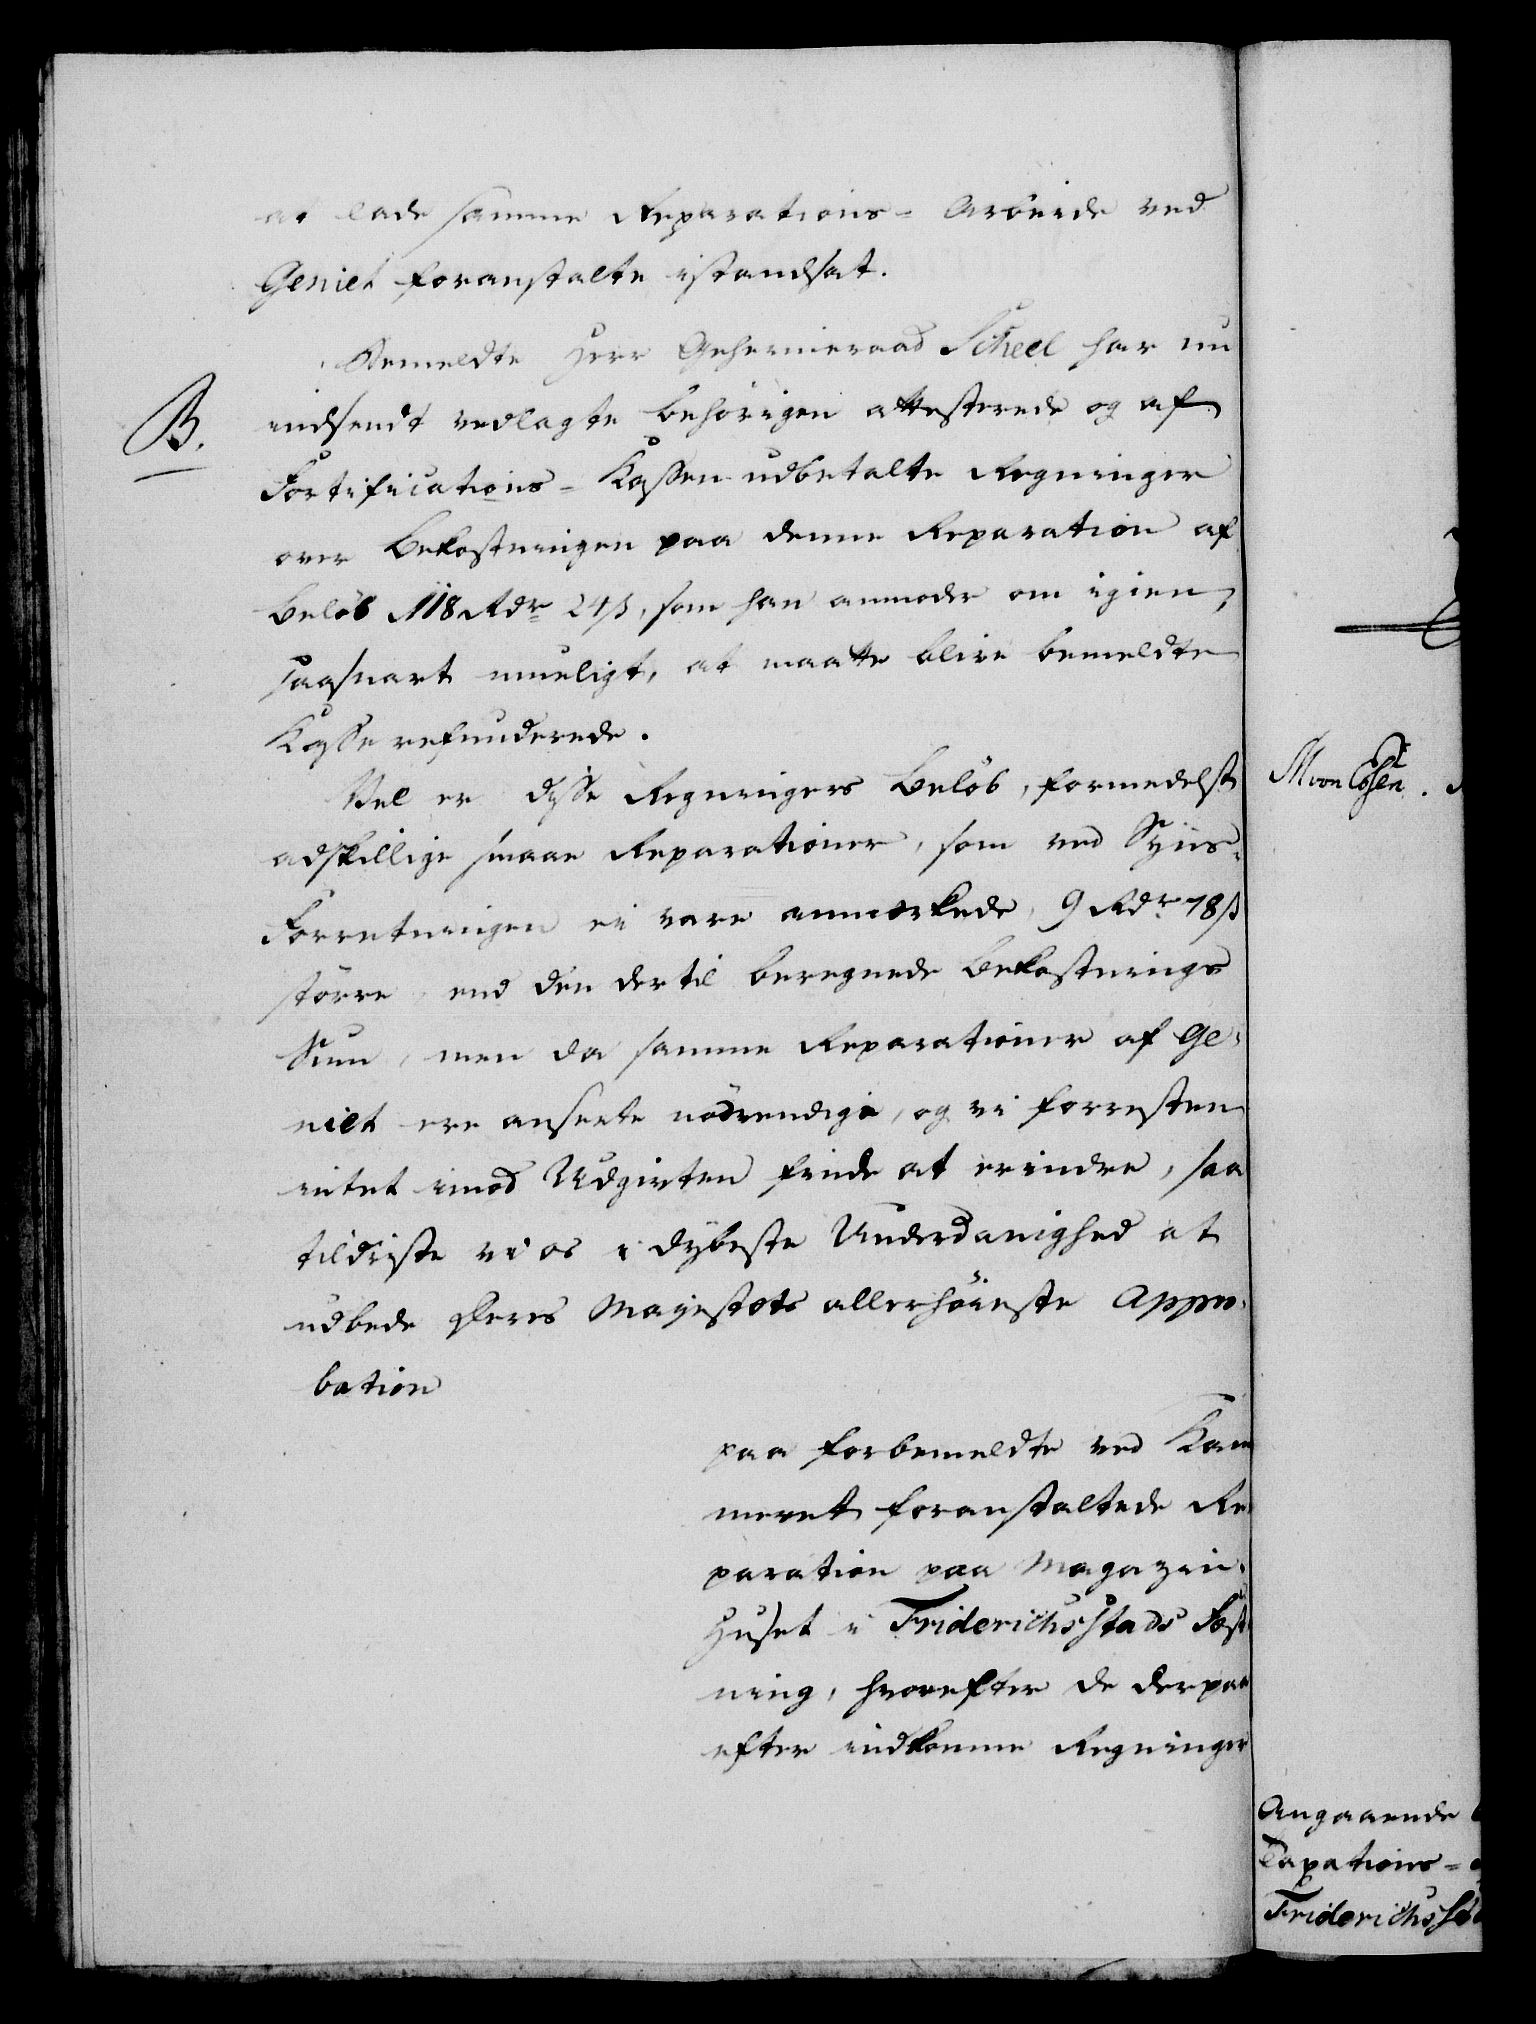 at lade samme Reparations-Arbeide ved
Geniet foranstalte istandsat.
Bemeldte Herr Geheimeraad Scheel har nu
B.
indsendt vedlagte behörigen attesterede og af
Fortifications-Kassen udbetalte Regninger
over Bekostningen paa denne Reparation af
Belöb 118 Rdr 24 ß, som han anmoder om igien,
saasnart mueligt, at maatte blive bemeldte
Kasse refunderede.
Vel er disse Regningers Belöb, formedelst
adskillige smaae Reparationer, som ved Syns-
Forretningen ei vare anmærkede, 9 Rdr 78 ß
større, end den dertil beregnede Bekostnings
Sum, men da samme Reparationer af Ge-
niet ere ansette nödvendige, og vi forresten
intet imod Udgivten finde at erindre, saa
tildriste vi os i dybeste Underdanighed at
udbede Deres Majestæts allerhöieste Appro-
bation
paa forbemeldte ved Kam
meret foranstaltede Re
paration paa Magazin-
Huset i Friderichsstads Fæst
ning, hvorefter de derpaa
efter indkomne Regninger
Angaaende
Taxations-
Friderichsst